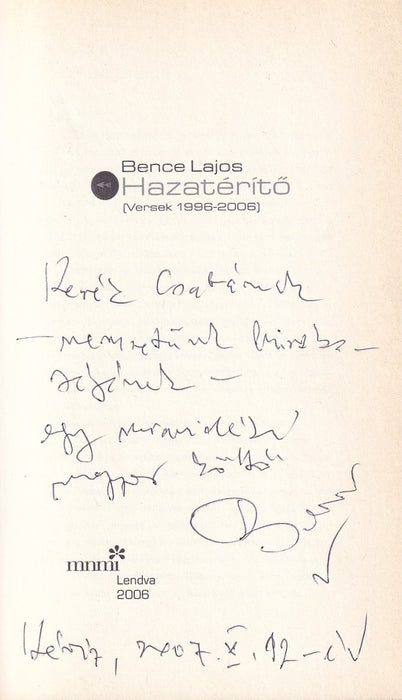 Bence Lajos
Hazatérítő
(Versek 1996-2006)
Csabának
– nemzetünk
–
egy muravidéki
magyar költő
Bence
mnmi
Lendva
2006
Hévíz, 2007. X. 12-én